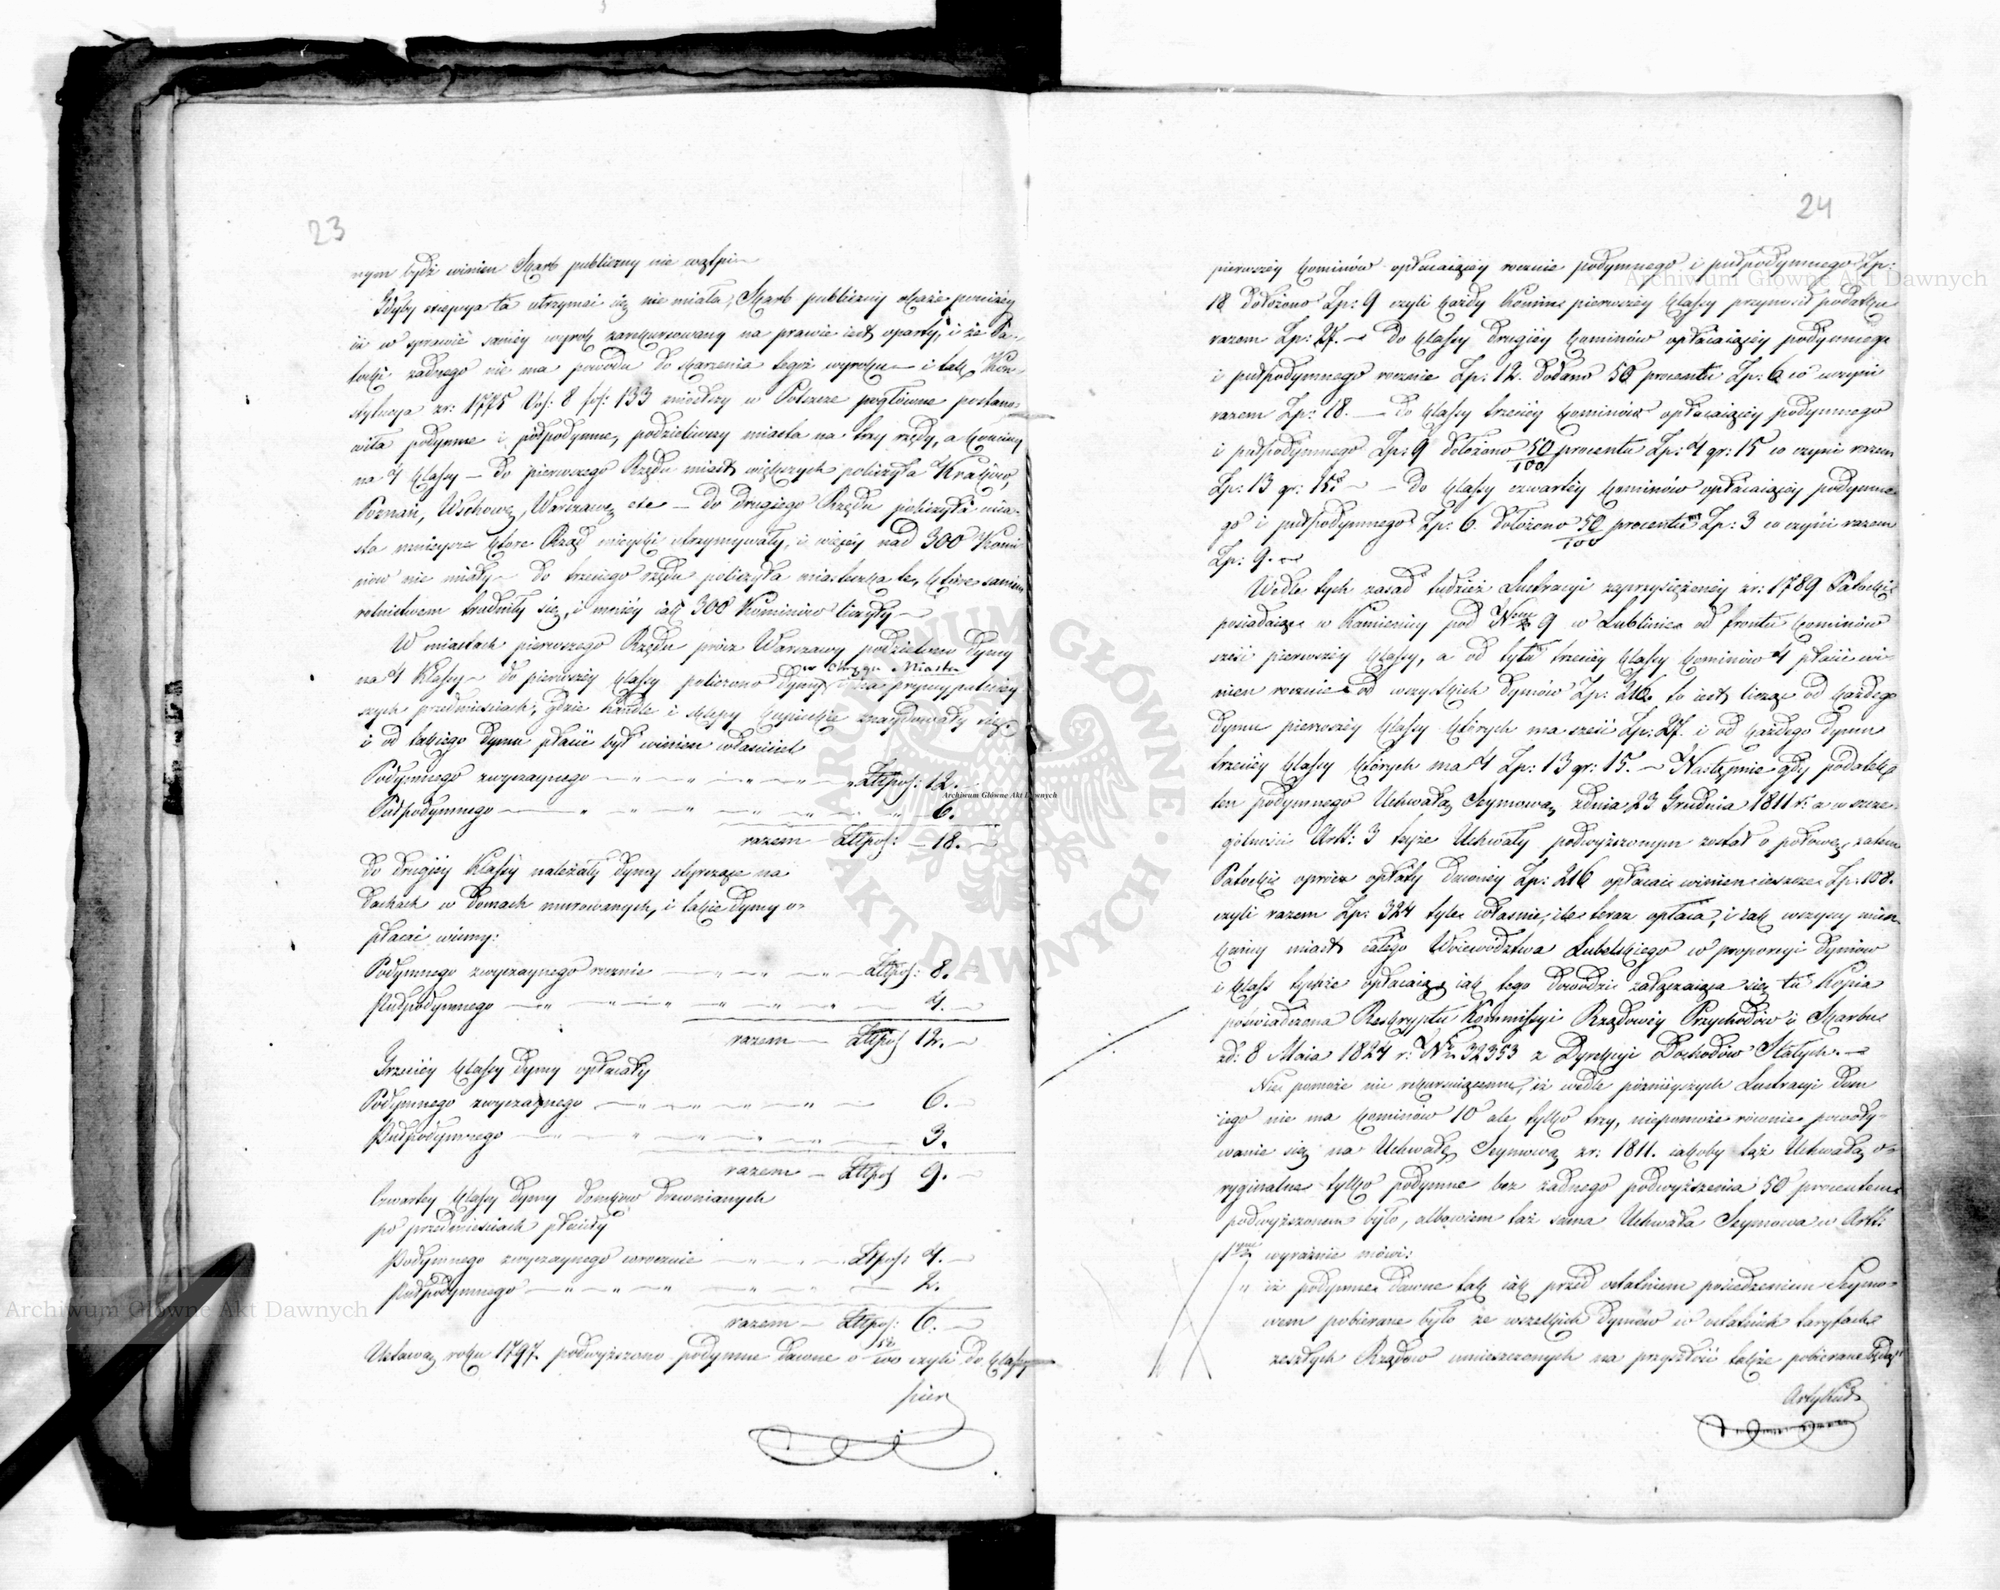 23
nym bydź winien Skarb publiczny nie wątpi
Gdyby excepcya ta utrzymać się nie miała, Skarb publiczny okaże poniżey
iż w sprawie ninieyszey wyrok zarekursowany na prawie iest oparty, i że Pa-
tocki żadnego nie ma powodu do skarżenia tegoż wyroku — i tak Kon-
stytucya zr: 1775 Vol: 8 fol: 133 zniósłszy w Polszcze pogłówne postano-
wiła podymne i pułpodymne, podzieliwszy miasta na trzy rzędy, a kominy
na 4 klassy — do pierwszego Rzędu miast większych policzyła Kraków,
Poznań, Wschowę, Warszawę etc — do drugiego Rzędu policzyła mia-
sta mnieysze które Rząd mieyski utrzymywały, i więcey nad 300 Komi-
nów nie miały — do trzeciego rzędu policzyła miasteczka te, które samem
rolnictwem trudniły się, i mniéy iak 300 Kominów liczyły —
W miastach pierwszego Rzędu prócz Warszawy podzielono dymy
na 4 Klassy — do pierwszey klassy policzono dymy w Rynku Miasta i na pryncypalniey-
szych przedmieściach, gdzie handle i sklepy kupieckie znaydowały się,
i od takiego dymu płacić był winien właściciel
Podymnego zwyczaynego — Złtpol: 12. —
Pułpodymnego — 6. —
razem — Złtpol: — 18. —
do drugiéy Klassy należały dymy styrczące na
dachach w domach murowanych, i takie dymy o-
płacać winny:
Podymnego zwyczaynego rocznie — Złtpol: 8. —
Pułpodymnego — 4. —
razem — Złtpol 12. —
Trzeciéy klassy dymy opłacały
Podymnego zwyczaynego — 6. —
Pułpodymnego — 3.
razem — Złtpol 9. —
Czwartey klassy dymy domków drewnianych
po przedmieściach płaciły
Podymnego zwyczaynego corocznie — Złtpol: 4. —
Pułpodymnego — 2.
razem — Złtpol: 6. —
Ustawą roku 1797. podwyższono podymne dawne o 50/100 czyli do klassy
pier
24
pierwszéy kominów opłacaiącéy rocznie podymnego i pułpodymnego Zp:
18 dołożono Zp: 9 czyli każdy Komin pierwszéy klassy przynosił podatku
razem Zp: 27. — do klassy drugiéy kominów opłacaiącéy podymnego
i pułpodymnego rocznie Zp: 12. dodano 50 procentu Zp: 6 co uczyni
razem Zp: 18. — do klassy trzeciéy kominów opłacaiącéy podymnego
i pułpodymnego Zp: 9 dołożono 50/100 procentu Zp: 4 gr: 15 co czyni razem
Zp: 13 gr: 15. — do klassy czwartéy kominów opłacaiącéy podymne-
go i pułpodymnego Zp: 6. dołożono 50/100 procentu Zp: 3 co czyni razem
Zp: 9. —
Wedle tych zasad tudzież Lustracyi zaprzysiężonéy zr: 1789 Patocki
posiadaiąc w Kamienicy pod Nrem 9 w Lublinie od frontu kominów
sześć pierwszéy klassy, a od tyłu trzeciéy klassy kominów 4 płacić wi-
nien rocznie od wszystkich dymów Zp: 216. to iest licząc od każdego
dymu pierwszéy klassy których ma sześć Zp: 27. i od każdego dymu
trzeciéy klassy których ma 4 Zp: 13 gr: 15. — Następnie gdy podatek
ten podymnego Uchwałą Seymową zdnia 23 Grudnia 1811 r: a w szcze-
gólności Artt: 3 teyże Uchwały podwyższonym został o połowę, zatem
Patocki oprócz opłaty dawnéy Zp: 216 opłacać winien ieszcze Zp: 108.
czyli razem Zp: 324 tyle właśnie, ile teraz opłaca, i iak wszyscy miesz-
kańcy miast całego Woiewództwa Lubelskiego w proporcyi dymów
i klass tychże opłacaią, iak tego dowodzi załączaiąca się tu Kopia
poświadczona Reskryptu Kommissyi Rządowéy Przychodów i Skarbu
zd: 8 Maia 1824 r: Nr. 32353 z Dyrekcyi Dochodów Stałych. —
Nic pomoże nie rekursuiącemu, iż wedle późnieyszych Lustracyi dom
iego nie ma kominów 10 ale tylko trzy, niepomoże równie powoły-
wanie się na Uchwałę Seymową zr: 1811. iakoby taż Uchwałą o-
ryginalne tylko podymne bez żadnego podwyższenia 50 procentem
podwyższonem było, albowiem taż sama Uchwała Seymowa w Artt:
1ym wyraźnie mówi:
„ iż podymne dawne tak iak przed ostatniem posiedzeniem Seymo-
wem pobierane było ze wszelkich dymów w ostatnich taryfach
zeszłych Rządów umieszczonych na przyszłość także pobierane będą"
Artykuł
ARCHIWUM GŁÓWNE AKT DAWNYCH
Archiwum Główne Akt Dawnych
Archiwum Główne Akt Dawnych
Archiwum Główne Akt Dawnych